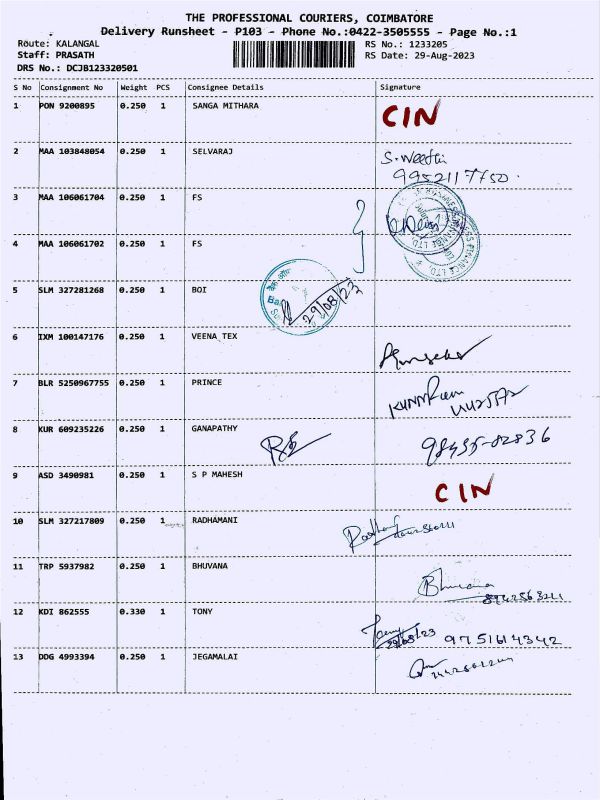 THE PROFESSIONAL COURIERS, COIMBATORE
Delivery Runsheet - P103 - Phone No.:0422-3505555 - Page No.:1
Route: KALANGAL RS No.: 1233205
Staff: PRASATH RS Date: 29-Aug-2023
DRS No.: DCJB123320501
S No Consignment No Weight PCS Consignee Details Signature
1 PON 9200895 0.250 1 SANGA MITHARA CIN
2 MAA 103848054 0.250 1 SELVARAJ
3 MAA 106061704 0.250 1 FS
4 MAA 106061702 0.250 1 FS
5 SLM 327281268 0.250 1 BOI 29/08/23
6 IXM 100147176 0.250 1 VEENA TEX
7 BLR 5250967755 0.250 1 PRINCE
8 KUR 609235226 0.250 1 GANAPATHY
9 ASD 3490981 0.250 1 S P MAHESH CIN
10 SLM 327217809 0.250 1 RADHAMANI
11 TRP 5937982 0.250 1 BHUVANA Bhuvana
12 KDI 862555 0.330 1 TONY 9751614342
13 DDG 4993394 0.250 1 JEGAMALAI